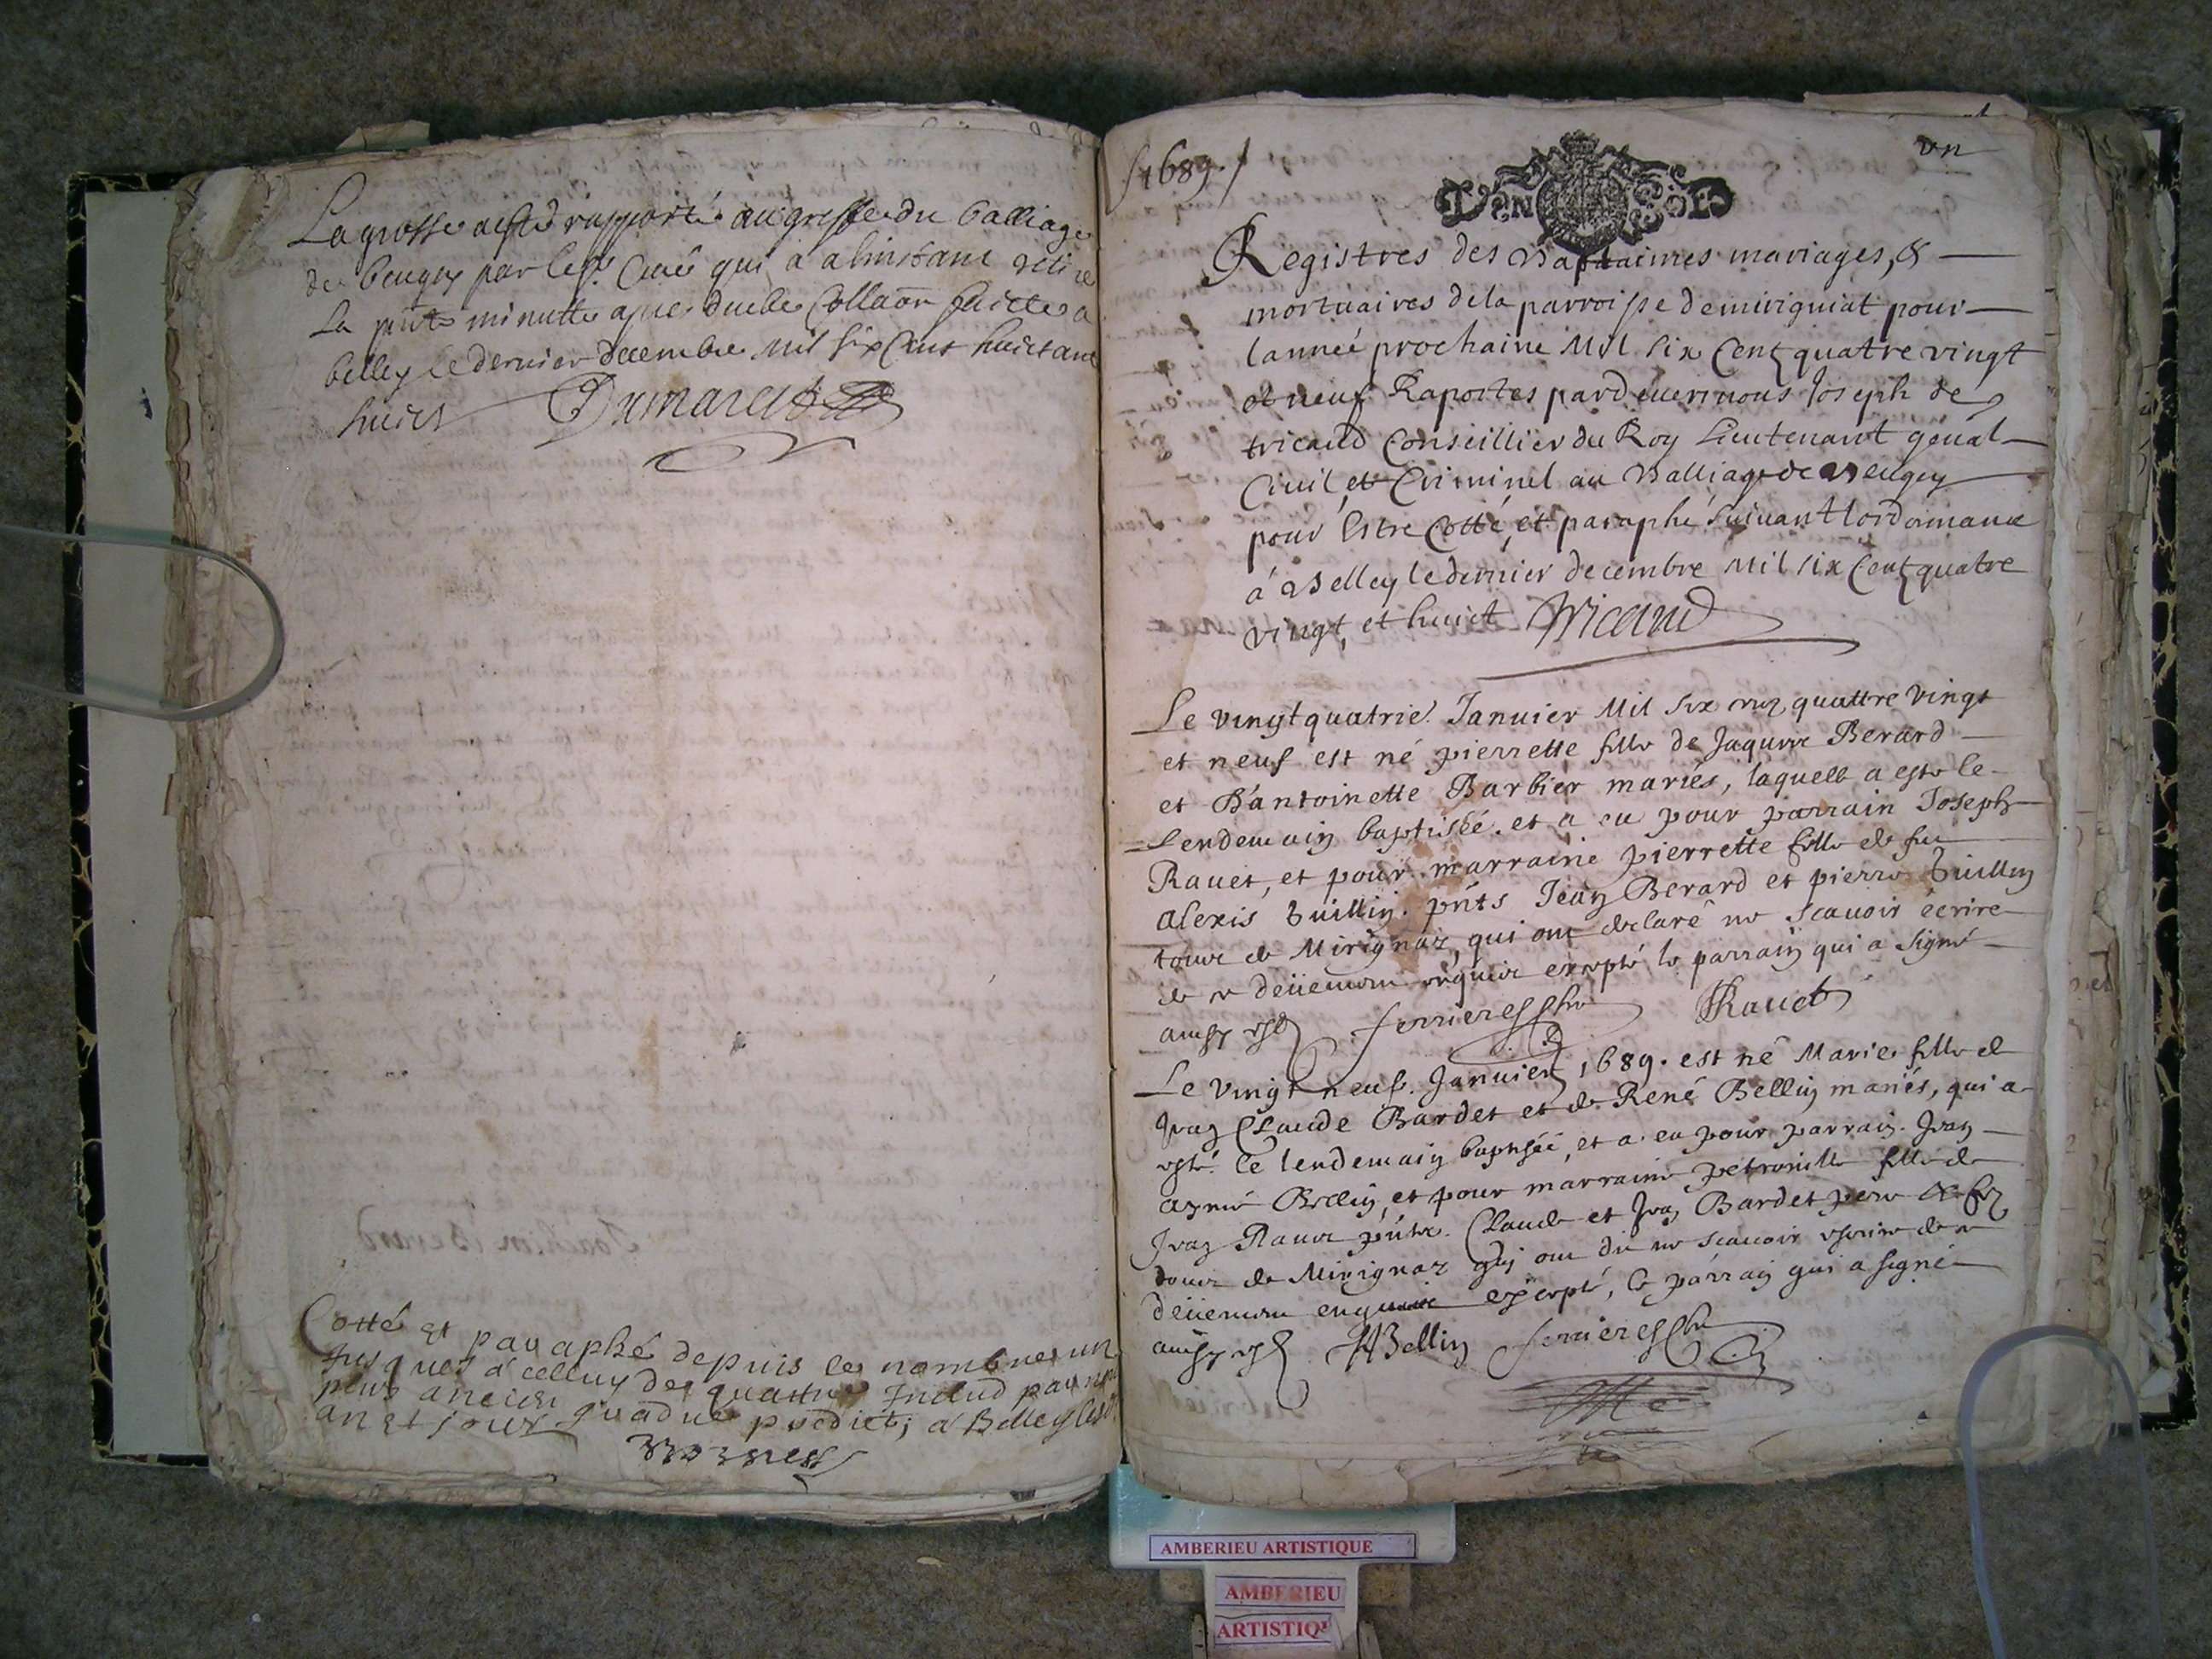 La grosse a esté rapporté au greffe du balliage
de beugey par le sr. Curé qui a a linstant retiré
La pnte minutte apres duebe Collaôn faicte a
belley le dernier decembre mil six Cent huictante
huict Dumarest
Cotté et paraphé depuis le nombre un
jusques a celluy de quattre Includ par n
plus ancien
an et jour que dict, a Belley
/1689./
un
VN SOL
Registres des Baptaimes mariages, &
mortuaires de la parroisse de mirigniat pour
lanneé prochaine Mil six Centz quatre vingt
et neuf Raportes pardevennous Joseph de
tricaud Conseillier du Roy Lieutenant genal
Civil et Criminel au Balliage de Beugey
pour Estre Cotté, et paraphé suivant lordonnance
á Belley le dernier decembre Mil six Centz quatre
vingt, et huict Tricaud
Le vingt quatrie. Janvier Mil Six cens quattre vingt
et neuf est né pierrette fille de Jaques Berard
et D'antoinette Barbier mariés, laquelle a este le
Lendemain baptiséé. et a eu pour parrain Joseph
Ravet, et pour marraine pierrette fille de feu
alexis Vuillin. pnts Jean Berard et pierre Vuillin
tous de Mirignaz, qui ont declaré ne scavoir écrire
de ce deüement enquis excepté le parrain qui a signé
ainsy est ferrieres Ravet
Le vingt neuf. Janvier 1689. est né Marie fille de
Jean Claude Bardet et de René Bellin mariés, qui a
esté. le lendemain baptiséé, et a eu pour parrain. Jean
aymé Bellin, et pour marraine petronille fille de
Jean Ravet pnts. Claude et Jean Bardet pere & filz
tous de Mirignaz qui ont dit ne scavoir escrire de ce
deüement enquis excepté, le parrain qui a signé
ainsy est Bellin ferrieres
AMBERIEU ARTISTIQUE
AMBERIEU
ARTISTIQ